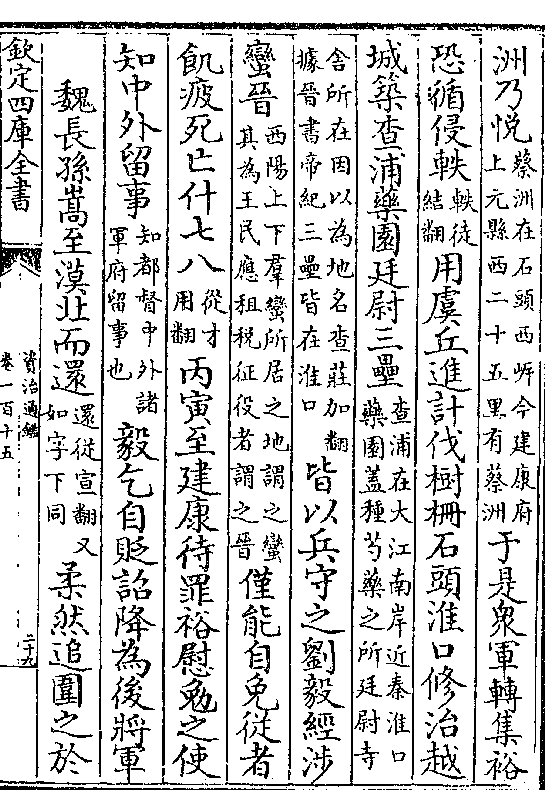 洲乃悅蔡洲在石頭西岸今建康府上元縣西二十五里有蔡洲于是衆軍轉集裕
恐循侵軼軼徒結翻用虞丘進計伐樹柵石頭淮口修治越
城築查浦藥園廷尉三壘查浦在大江南岸近秦淮口藥園蓋種芍藥之所廷尉寺
舍所在因以為地名查莊加翻據晉書帝紀三壘皆在淮口皆以兵守之劉毅經涉
蠻晉西陽上下羣蠻所居之地謂之蠻其為王民應租稅征役者謂之晉僅能自免從者
飢疲死亡什七八從才用翻丙寅至建康待罪裕慰勉之使
知中外留事知都督中外諸軍府留事也毅乞自貶詔降為後將軍
魏長孫嵩至漠北而還還從宣翻又如字下同柔然追圍之於
欽定四庫全書
資治通鑑
卷一百十五
二十九